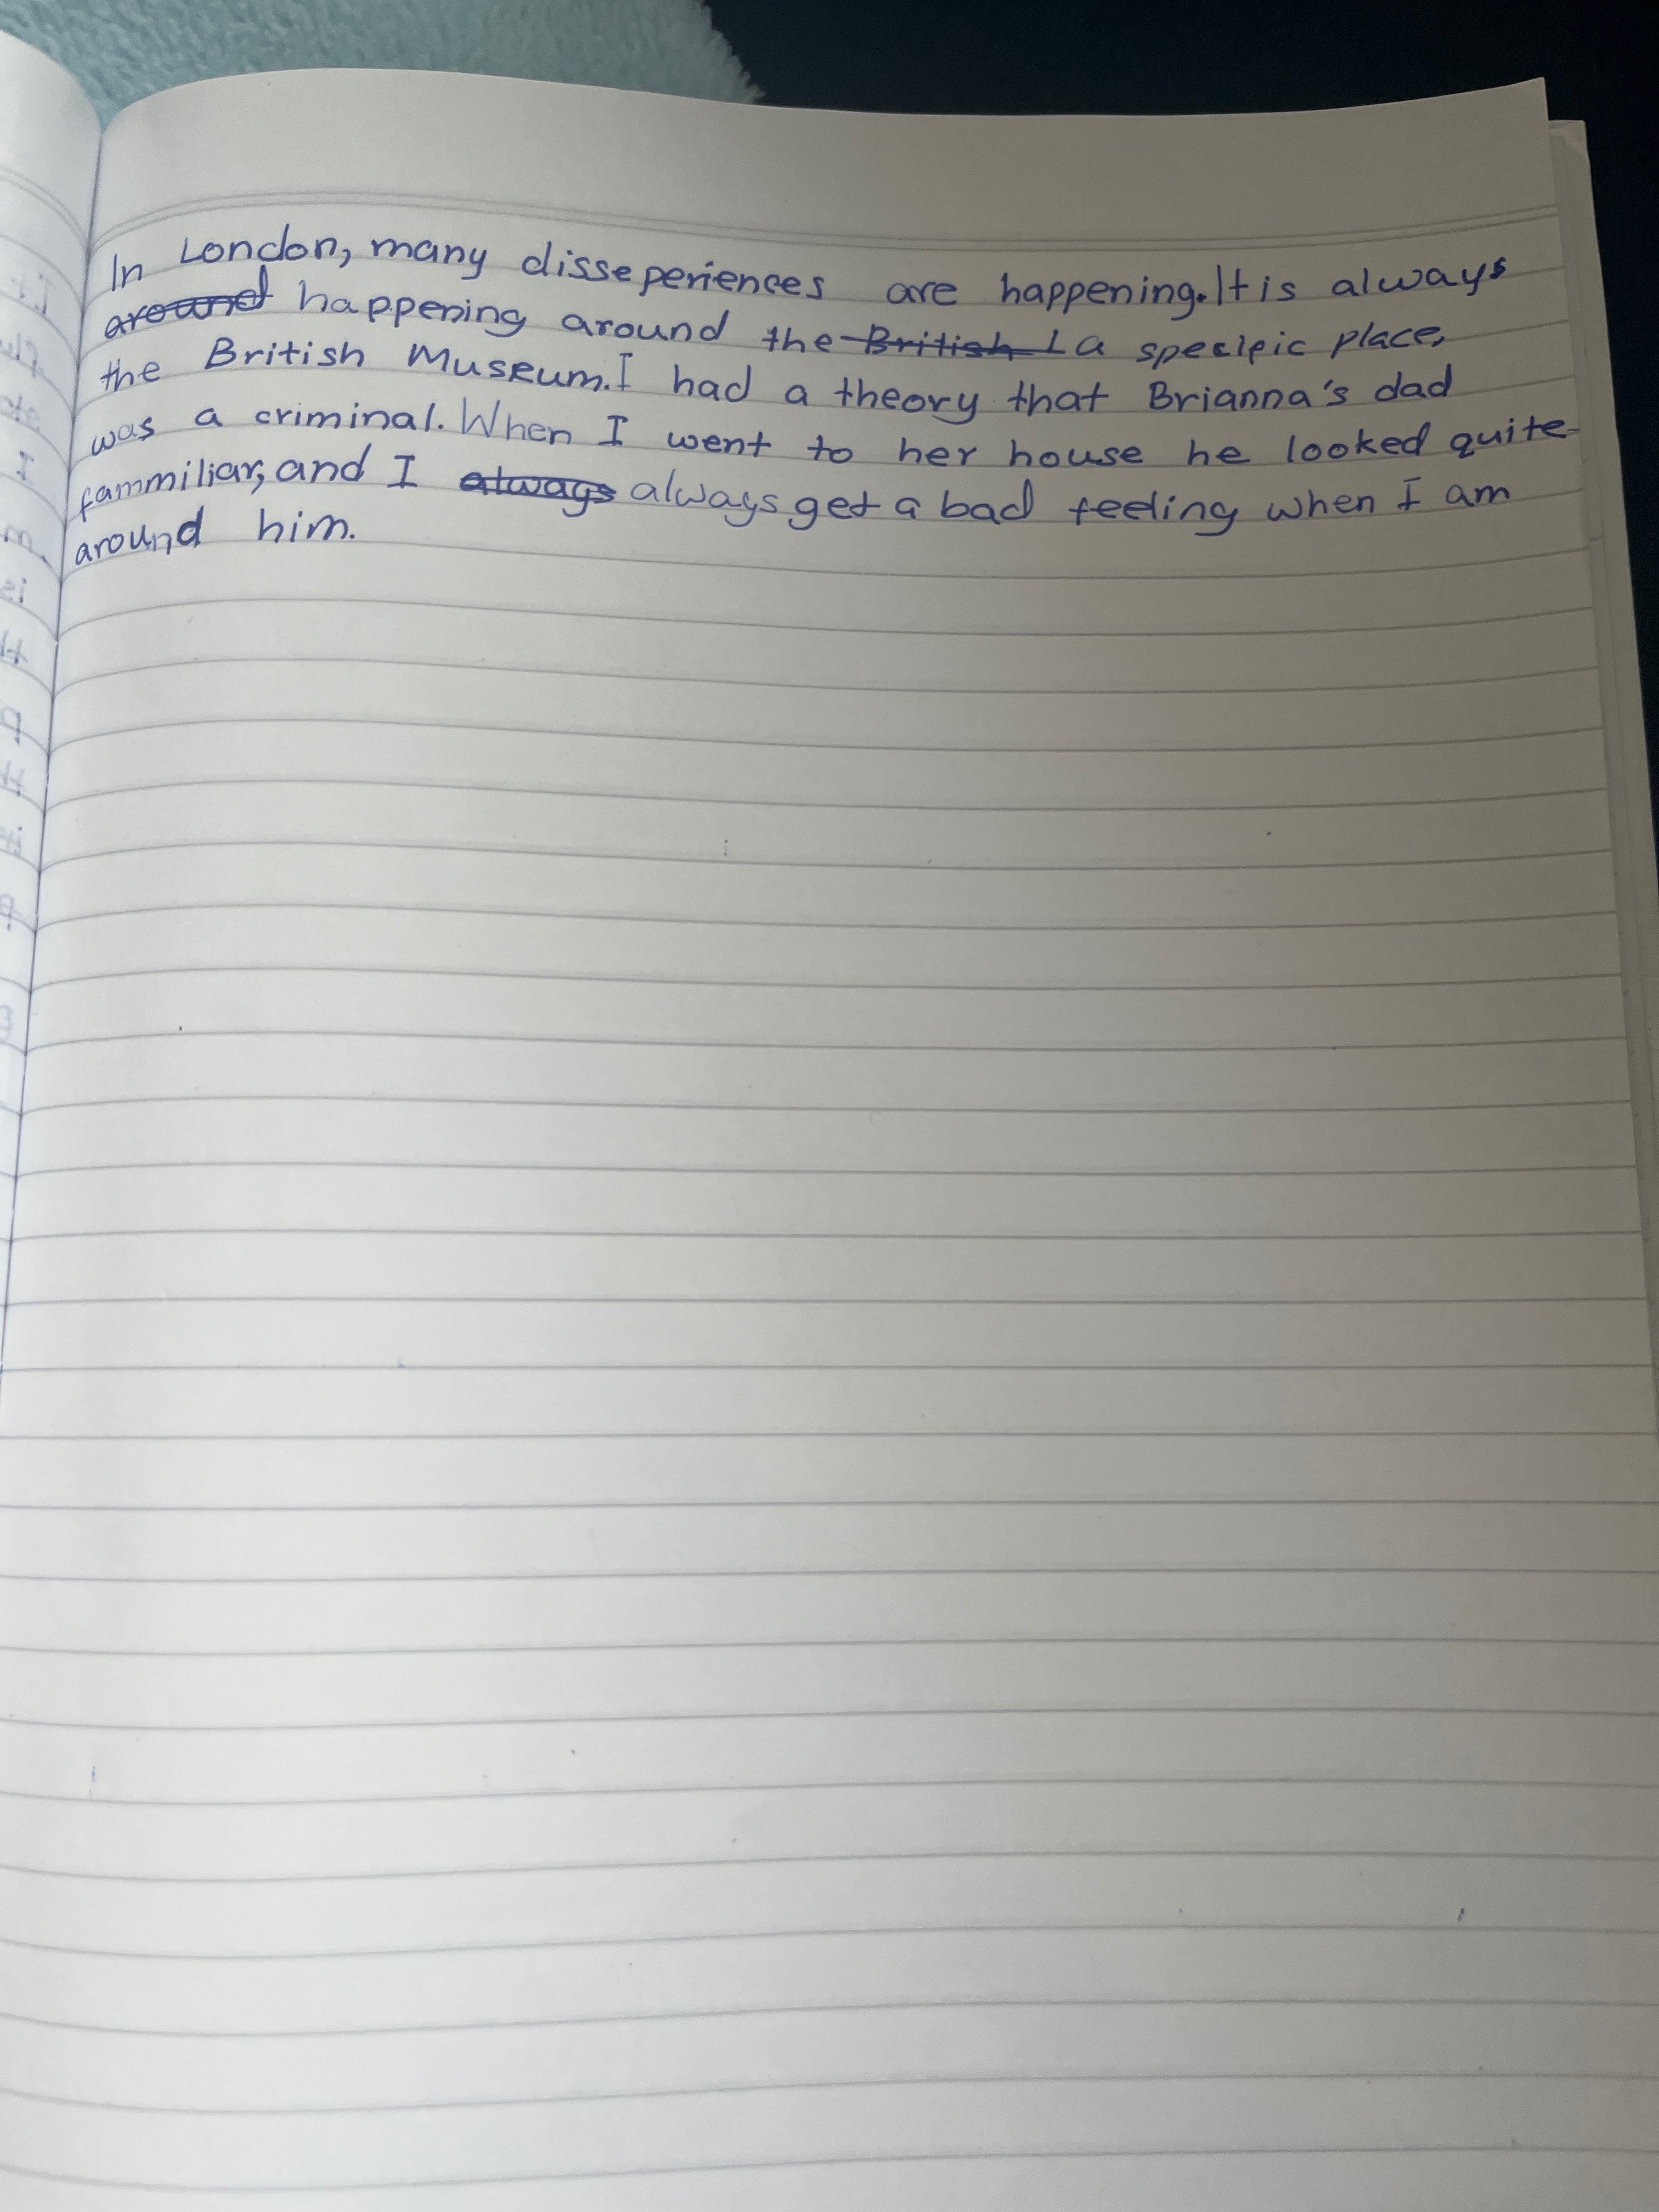 In London, many disseperiences are happening. It is always
around happening around the British L a specipic place,
the British Museum. I had a theory that Brianna's dad
was a criminal. When I went to her house he looked quite
fammiliar, and I always always get a bad feeling when I am
around him.